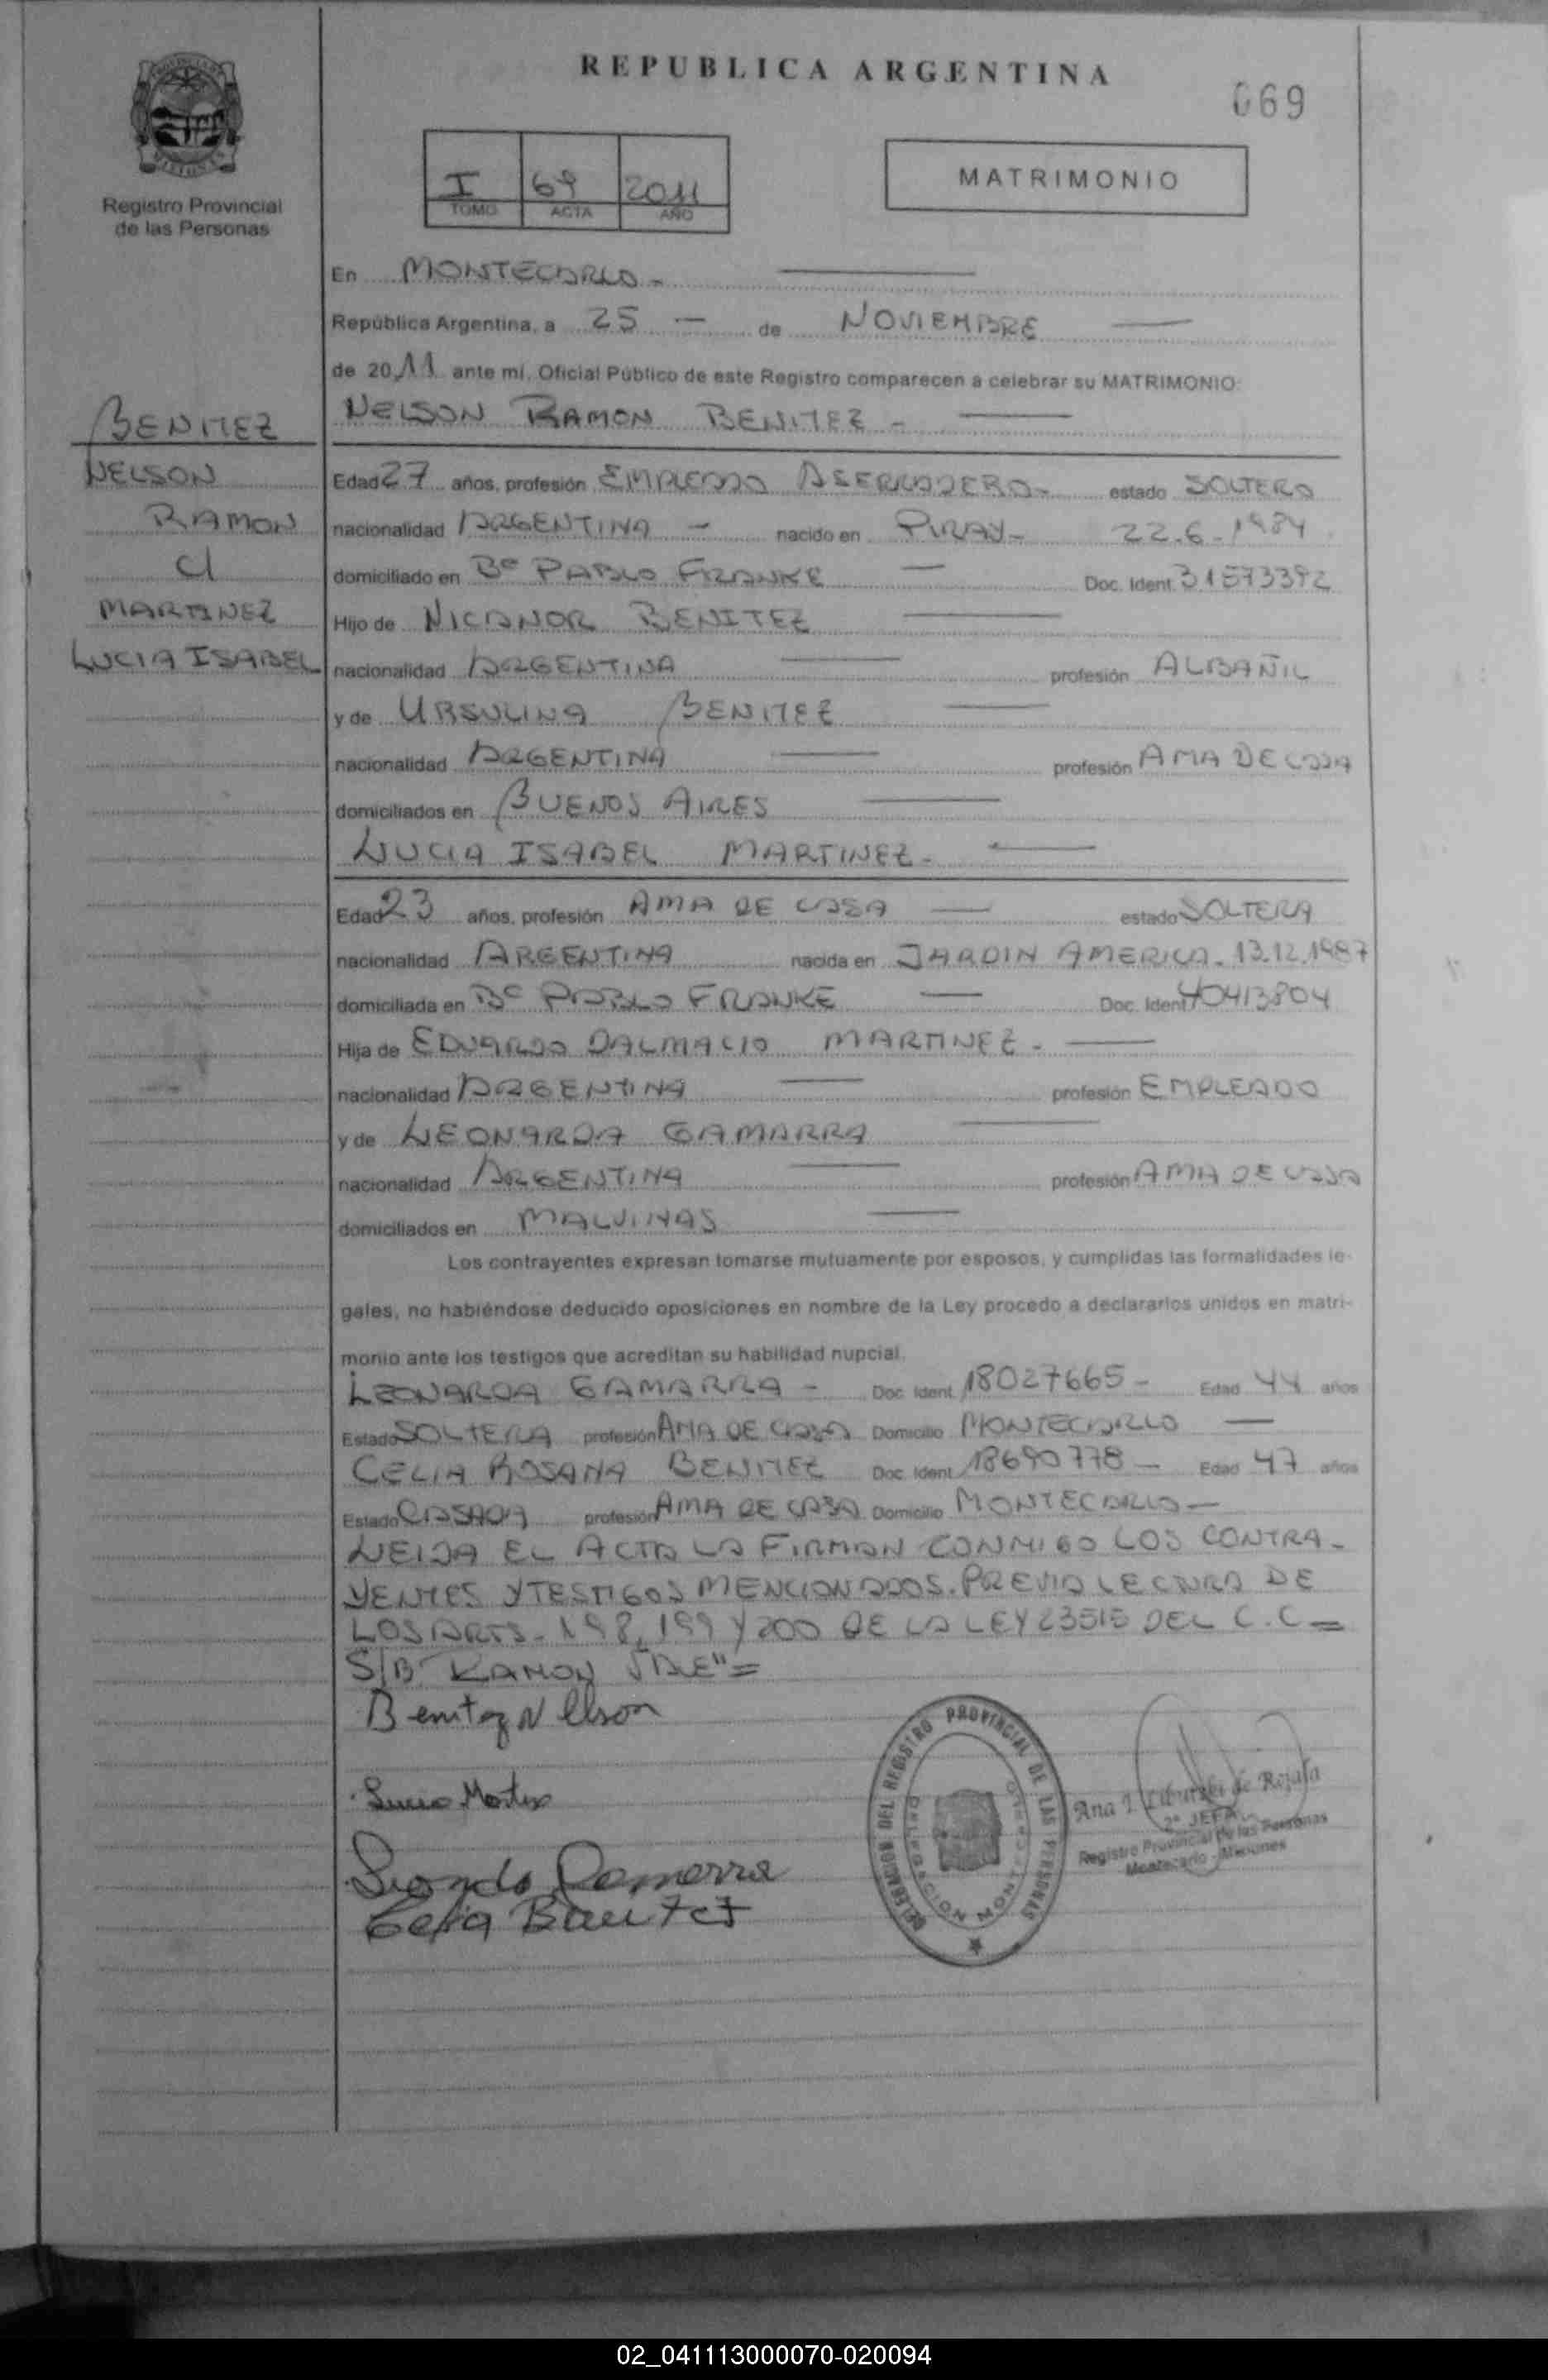 REPUBLICA ARGENTINA
069
Registro Provincial
de las Personas
I 69 2011
TOMO ACTA AÑO
MATRIMONIO
En MONTECARLO -
República Argentina, a 25 — de NOVIEMBRE
de 2011 ante mí, Oficial Público de este Registro comparecen a celebrar su MATRIMONIO:
BENITEZ
NELSON
RAMON
C/
MARTINEZ
LUCIA ISABEL
NELSON RAMON BENITEZ -
Edad 27 años, profesión EMPLEADO ASERRADERO - estado SOLTERO
nacionalidad ARGENTINA - nacido en PIRAY - 22.6.1984
domiciliado en Bº PABLO FRANKE — Doc. Ident. 31573392
Hijo de NICANOR BENITEZ
nacionalidad ARGENTINA profesión ALBAÑIL
y de URSULINA BENITEZ
nacionalidad ARGENTINA profesión AMA DE CASA
domiciliados en BUENOS AIRES
LUCIA ISABEL MARTINEZ -
Edad 23 años, profesión AMA DE CASA — estado SOLTERA
nacionalidad ARGENTINA nacida en JARDIN AMERICA - 13.12.1987
domiciliada en Bº PABLO FRANKE — Doc. Ident. 40413804
Hija de EDUARDO DALMACIO MARTINEZ -
nacionalidad ARGENTINA profesión EMPLEADO
y de LEONARDA GAMARRA
nacionalidad ARGENTINA profesión AMA DE CASA
domiciliados en MALVINAS
Los contrayentes expresan tomarse mutuamente por esposos, y cumplidas las formalidades le-
gales, no habiéndose deducido oposiciones en nombre de la Ley procedo a declararlos unidos en matri-
monio ante los testigos que acreditan su habilidad nupcial.
LEONARDA GAMARRA - Doc. Ident. 18027665 - Edad 44 años
Estado SOLTERA profesión AMA DE CASA Domicilio MONTECARLO —
CELIA ROSANA BENITEZ Doc. Ident. 18690778 - Edad 47 años
Estado CASADA profesión AMA DE CASA Domicilio MONTECARLO -
LEIDA EL ACTA LA FIRMAN CONMIGO LOS CONTRA-
YENTES Y TESTIGOS MENCIONADOS. PREVIA LECTURA DE
LOS ARTS. 198, 199 Y 200 DE LA LEY 23515 DEL C.C =
S/B "RAMON VALE" =
Benitez Nelson
Lucia Martinez
Leonarda Gamarra
Celia Benitez
DELEGACION DEL REGISTRO PROVINCIAL DE LAS PERSONAS
Ana de Rojala
2ª JEFA
Registro Provincial de las Personas
Montecarlo - Misiones
02_041113000070-020094